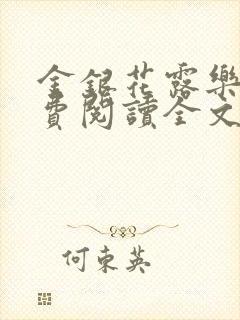 金銀花露樂
費閱讀全文
何東英